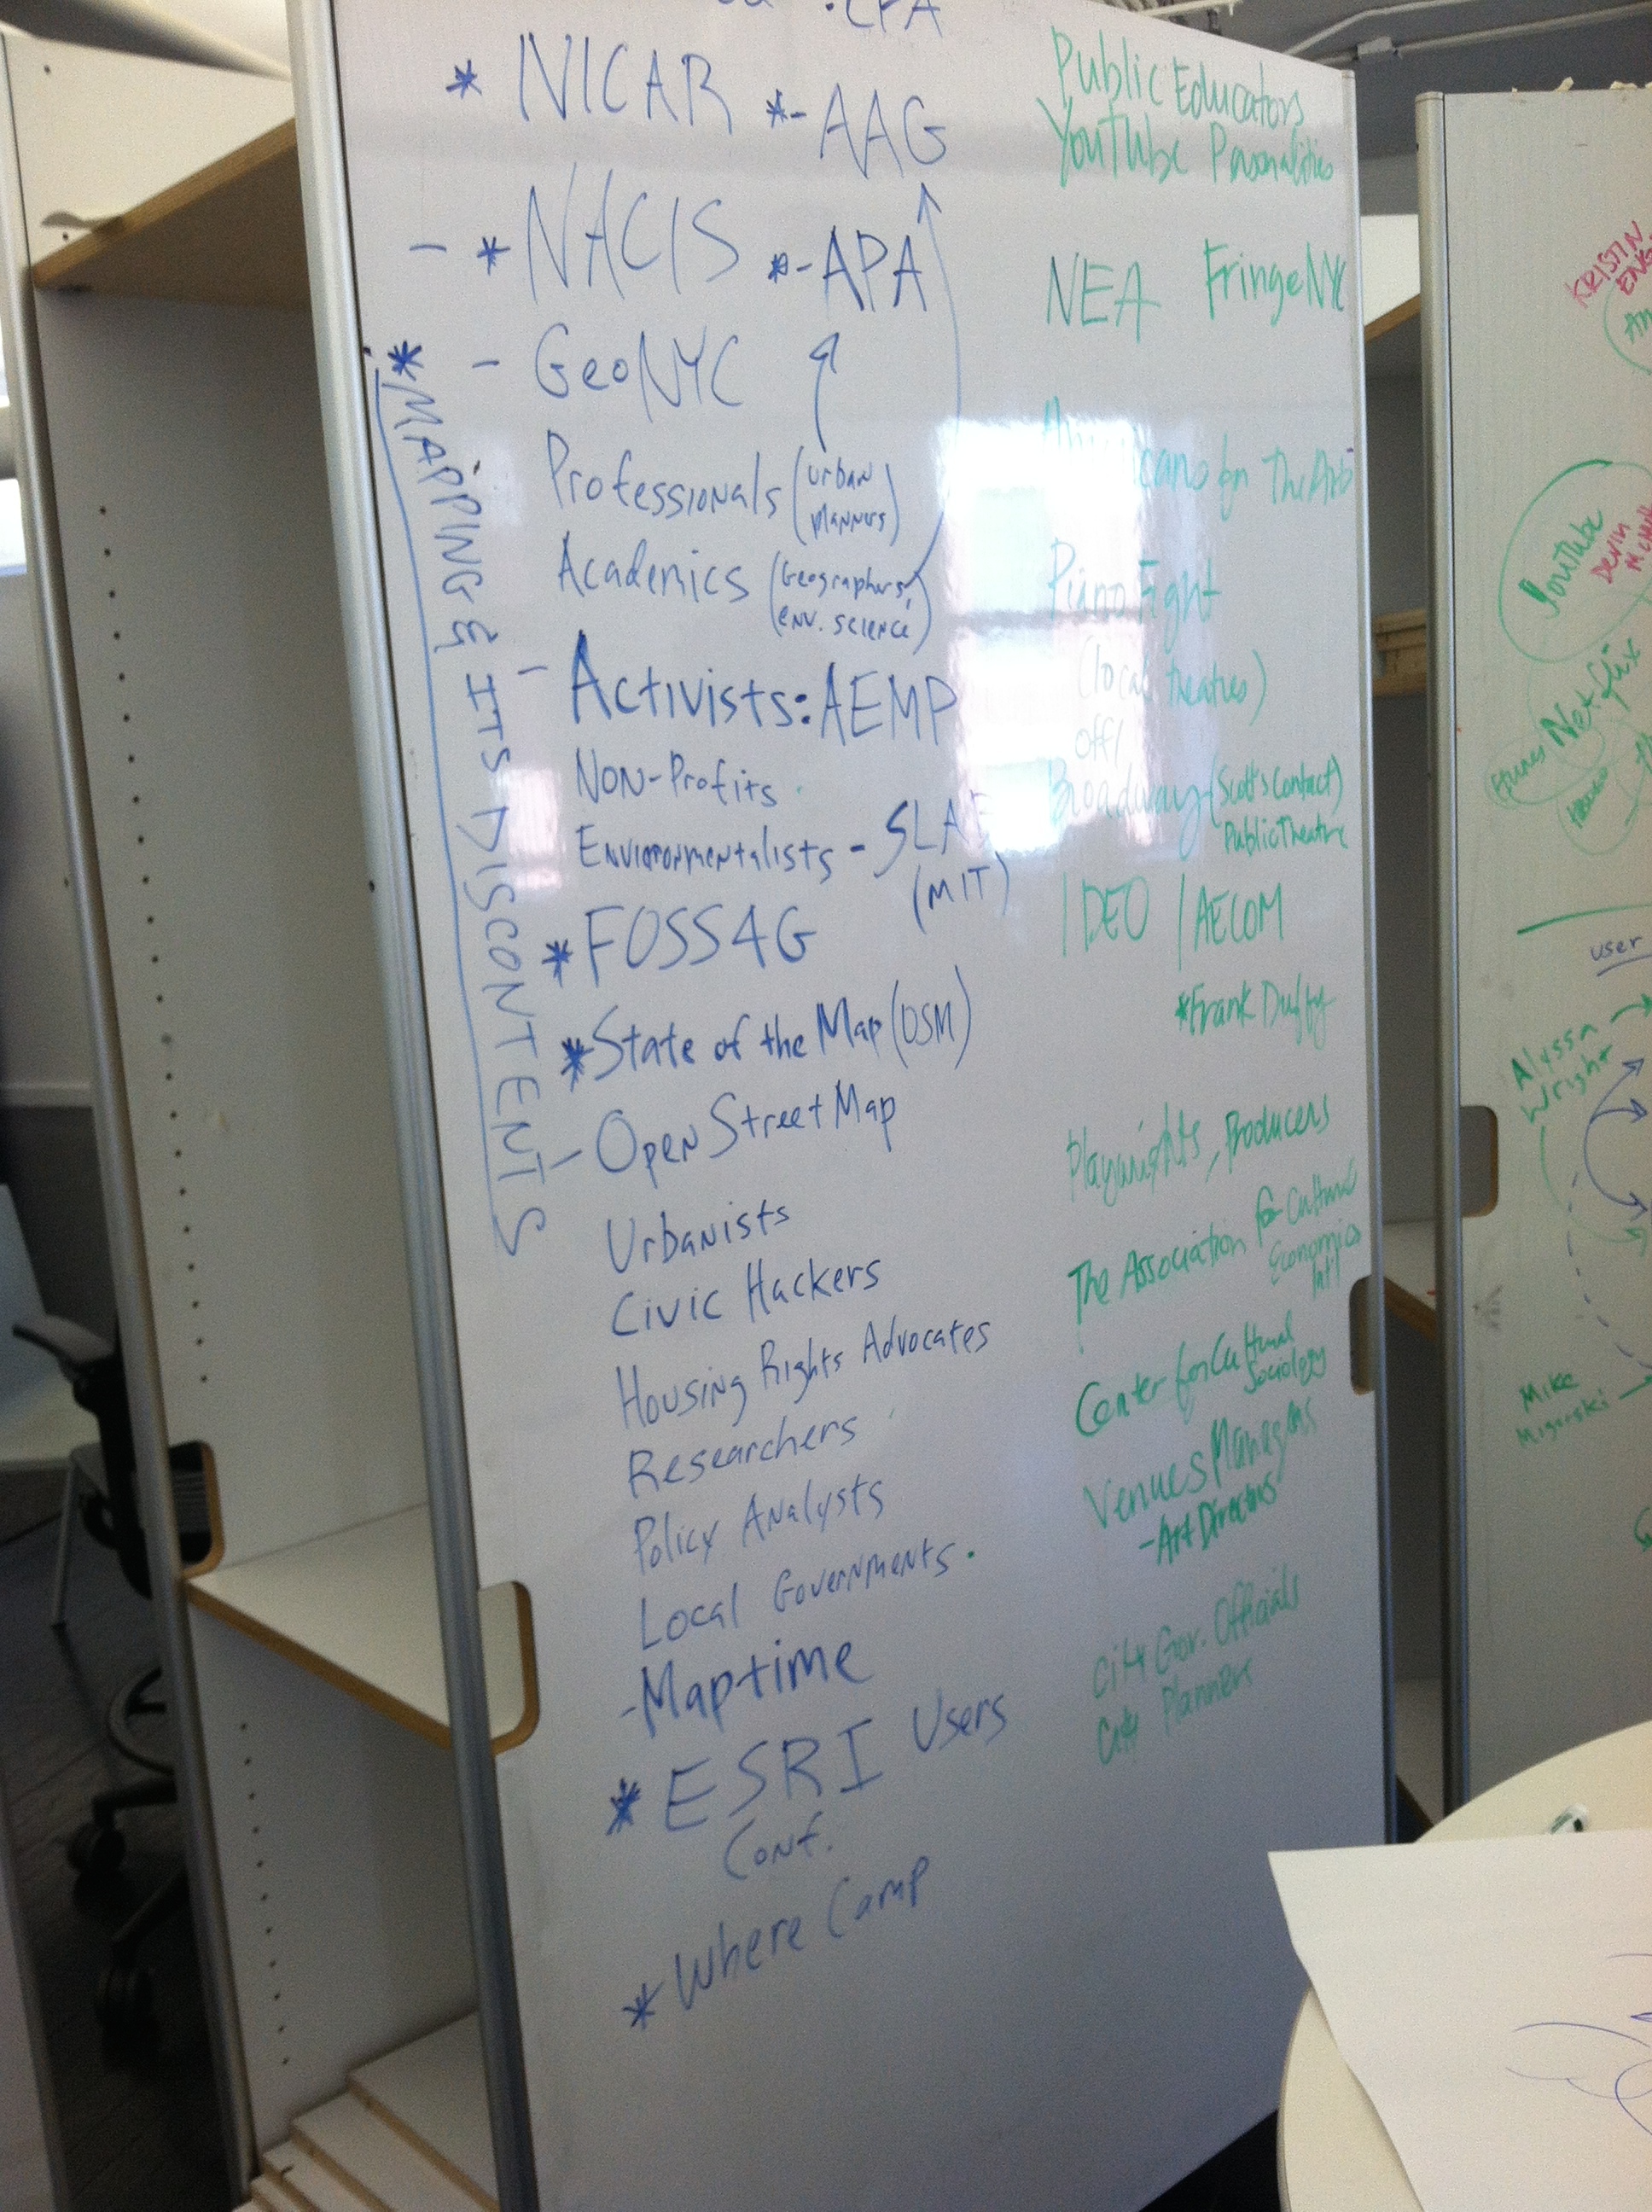 CFA
* NICAR *- AAG
- * NACIS *- APA
- GeoNYC
Professionals (urban
planners)
Academics (Geographers,
env. science)
- Activists: AEMP
Non-Profits
Environmentalists -
(MIT)
* FOSS4G
* State of the Map (OSM)
- Open Street Map
Urbanists
Civic Hackers
Housing Rights Advocates
Researchers
Policy Analysts
Local Governments.
- Maptime
* ESRI Users
Conf.
* Where Camp
* MAPPING & ITS DISCONTENTS
Public Educators
YouTube Personalities
NEA FringeNYC
The Arts
Piano Fight
(local theatres)
off/
Broadway (Scott's Contact)
Public Theatre
IDEO / AECOM
* Frank Duffy
Playwrights, Producers
The Association for Cultural
Economics
Int'l
Center for Cultural
Sociology
Venues Managers
- Art Directors
City Gov. Officials
City Planners
KRISTIN
YouTube
Devin
Netflix
user
Alyssa
Wright
Mike
Migurski